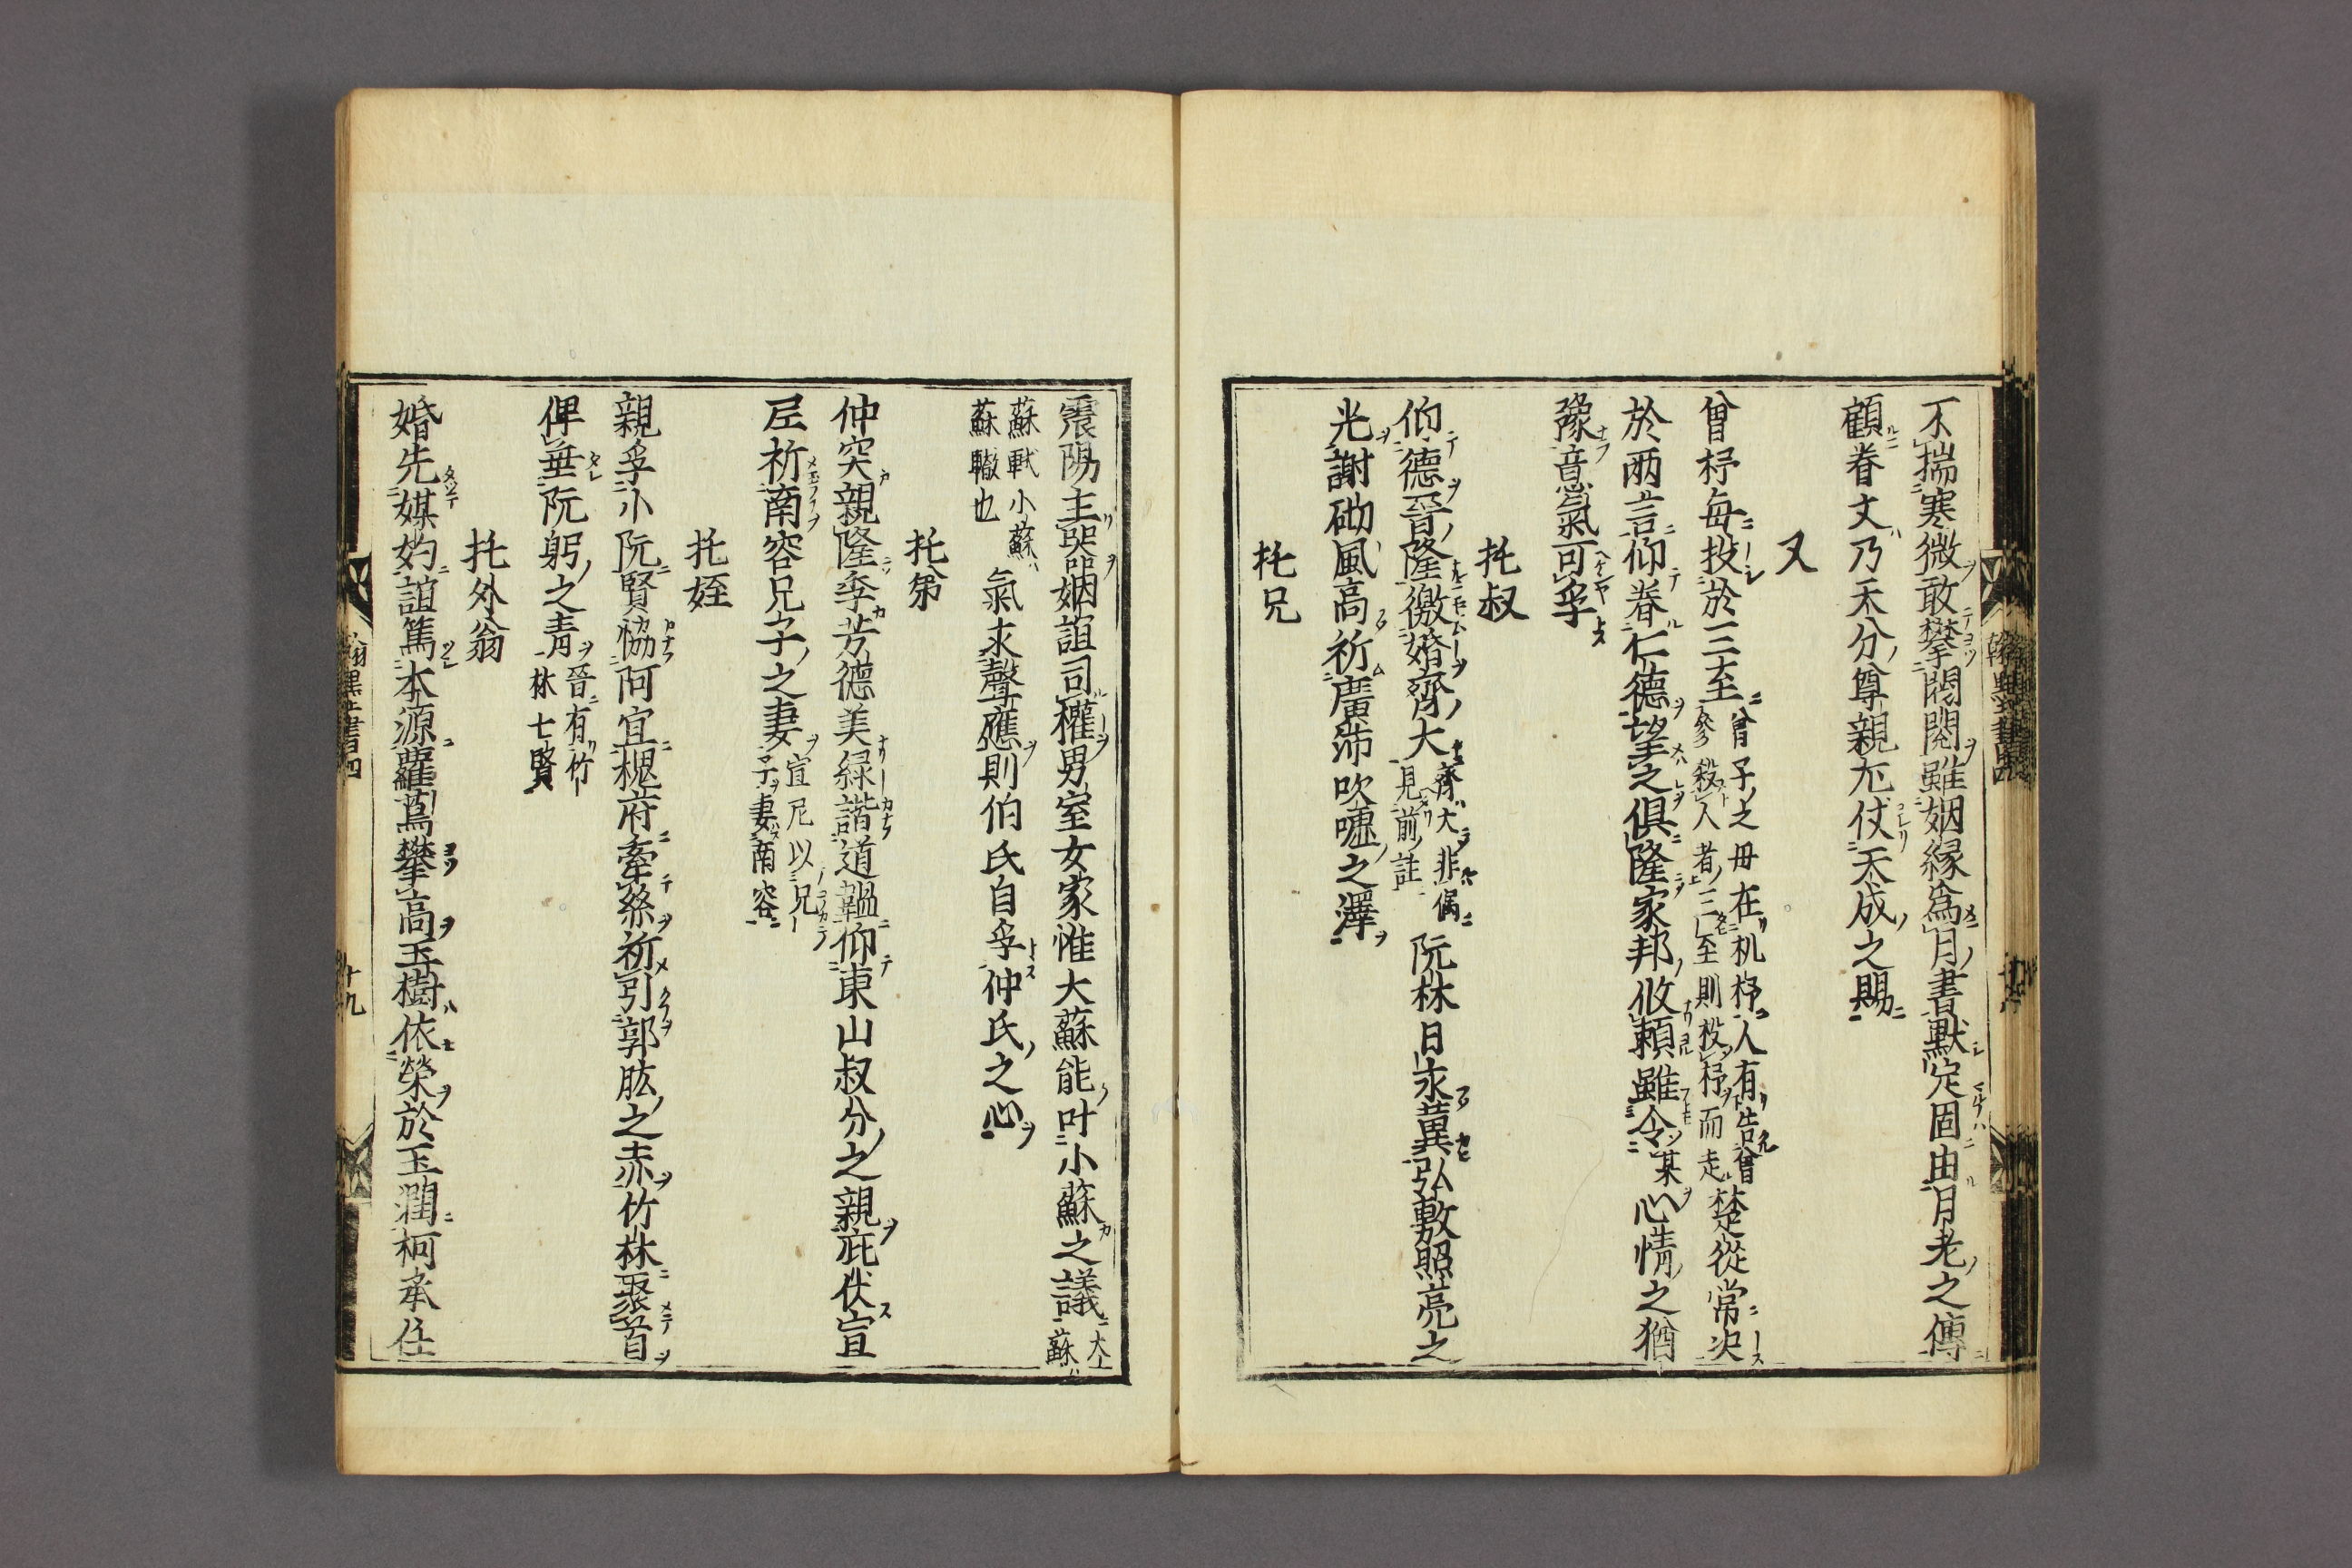 不揣寒微敢攀閥閲雖姻縁為月書默定固由月老之傳
顧眷丈乃天分尊親尢仗天成之賜
又
曾杼每投於三至曾子之母在机杼人有告曾
參殺人者三至則投杼而走楚從常决
於兩言仰眷仁德望之俱隆家邦攸頼雖令某心情之猶
豫意氣可孚
托叔
仰德晉隆徼婚齊大齊大非偶
見前註阮林日永冀弘敷照亮之
光謝砌風高祈廣沛吹噓之澤
托兄
震陽主器姻誼司權男室女家惟大蘇能叶小蘇之議大
蘇
蘇軾小蘇
蘇轍也氣求聲應則伯氏自孚仲氏之心
托弟
仲突親隆季芳德美緑諧道韞仰東山叔分之親庇伏宣
尼祈南容兄子之妻宣尼以兄
子妻南容
托姪
親孚小阮賢協阿宜槐府牽絲祈引郭肱之赤竹林聚首
俾垂阮躬之青晉有竹
林七賢
托外翁
婚先媒妁誼篤本源蘿蔦攀高玉樹依榮於玉潤柯承任
翰墨全書四
十九